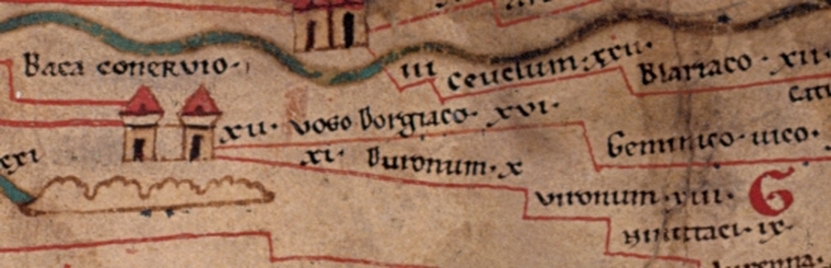 Baca conervio·
III Ceuclum·xxII·
Blariaco·xII·
xII· voso borgiaco·xvI·
Geminico vico·
xxI
xI· Buronum·x
vironum·vIII· G
Ix·